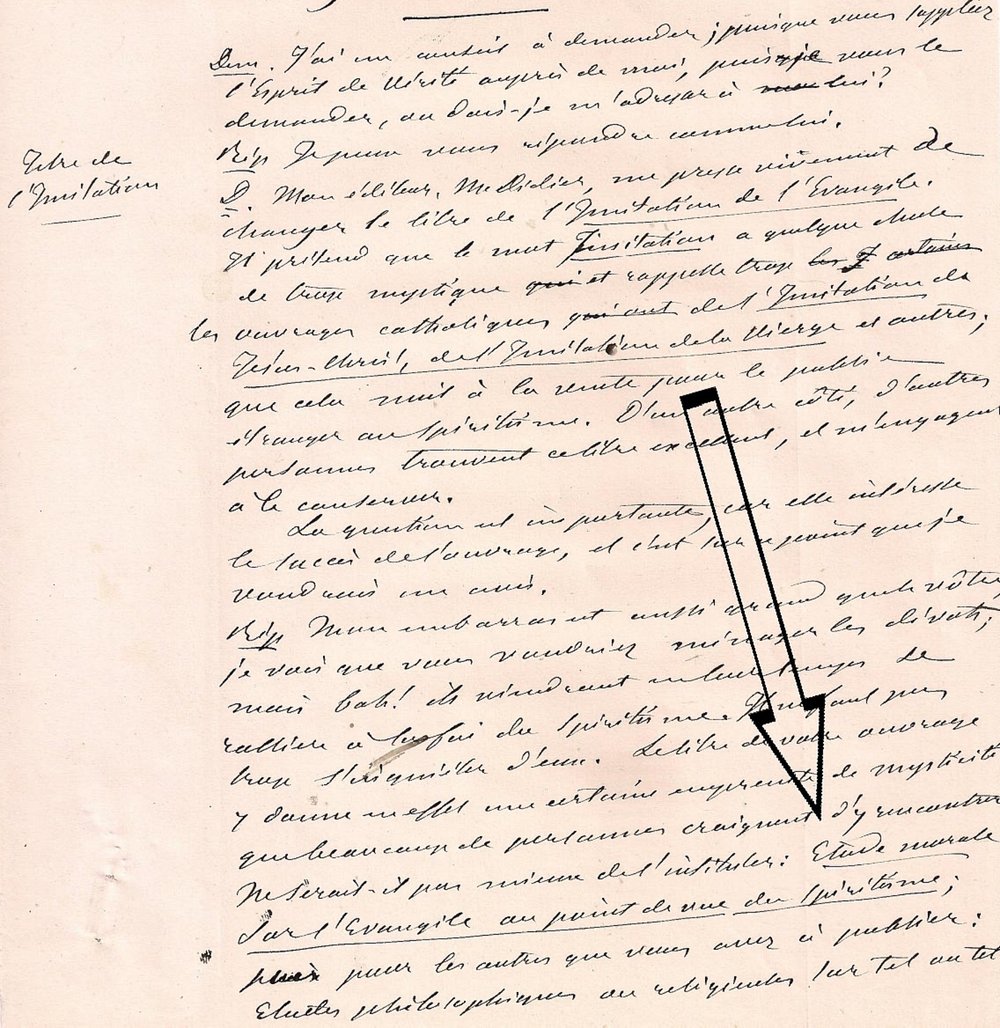 Titre de
l'Imitation
Dem. J'ai un conseil à demander ; puisque vous suppléez
l'Esprit de Vérité auprès de moi, puis-je vous le
demander, ou dois-je m'adresser à lui?
Rép Je peux vous répondre comme lui.
D. Mon éditeur, Mr Didier, me presse vivement de
changer le titre de l'Imitation de l'Evangile.
Il prétend que le mot Imitation a quelque chose
de trop mystique qui et rappelle trop les certains
les ouvrages catholiques qui ont de l'Imitation de
Jésus-Christ, de l'Imitation de la Vierge et autres;
que cela nuit à la vente pour le public
étranger au Spiritisme. D'un autre côté, d'autres
personnes trouvent ce titre excellent, et m'engagent
à le conserver.
La question est importante, car elle intéresse
le succès de l'ouvrage, et c'est sur ce point que je
voudrais un avis.
Rép Mon embarras est aussi grand que le vôtre,
je vois que vous voudriez ménager les dévots;
mais bah! ils viendront en leur temps se
rallier à la foi du Spiritisme. Il ne faut pas
trop s'inquiéter d'eux. Le titre de votre ouvrage
y donne en effet une certaine empreinte de mysticité
que beaucoup de personnes craignent d'y rencontrer
Ne serait-il pas mieux de l'intituler: Etude morale
sur l'Evangile au point de vue du Spiritisme;
puis pour les autres que vous avez à publier:
Etudes philosophiques ou religieuses sur tel ou tel